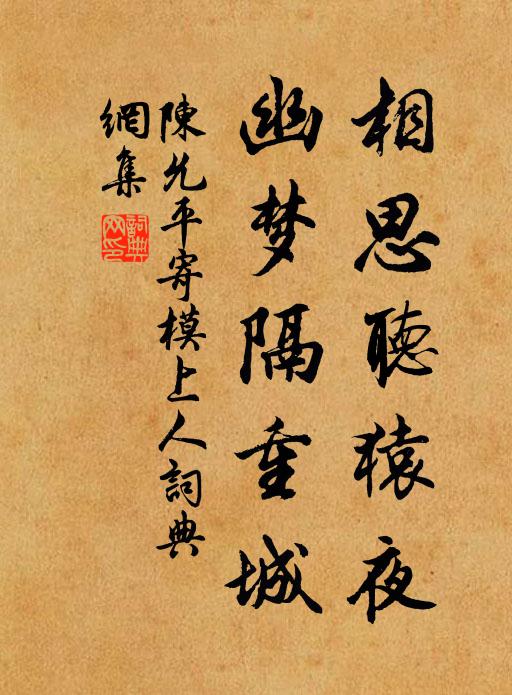 相思聽猿夜
幽梦隔重城
陳允平寄模上人詞典
網集
詞典網印